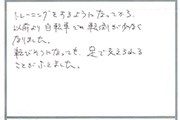 トレーニングをするようになってから、
以前より自転車での転倒が少なく
なりました。
転びそうになっても、足で支えられる
ことがふえました。